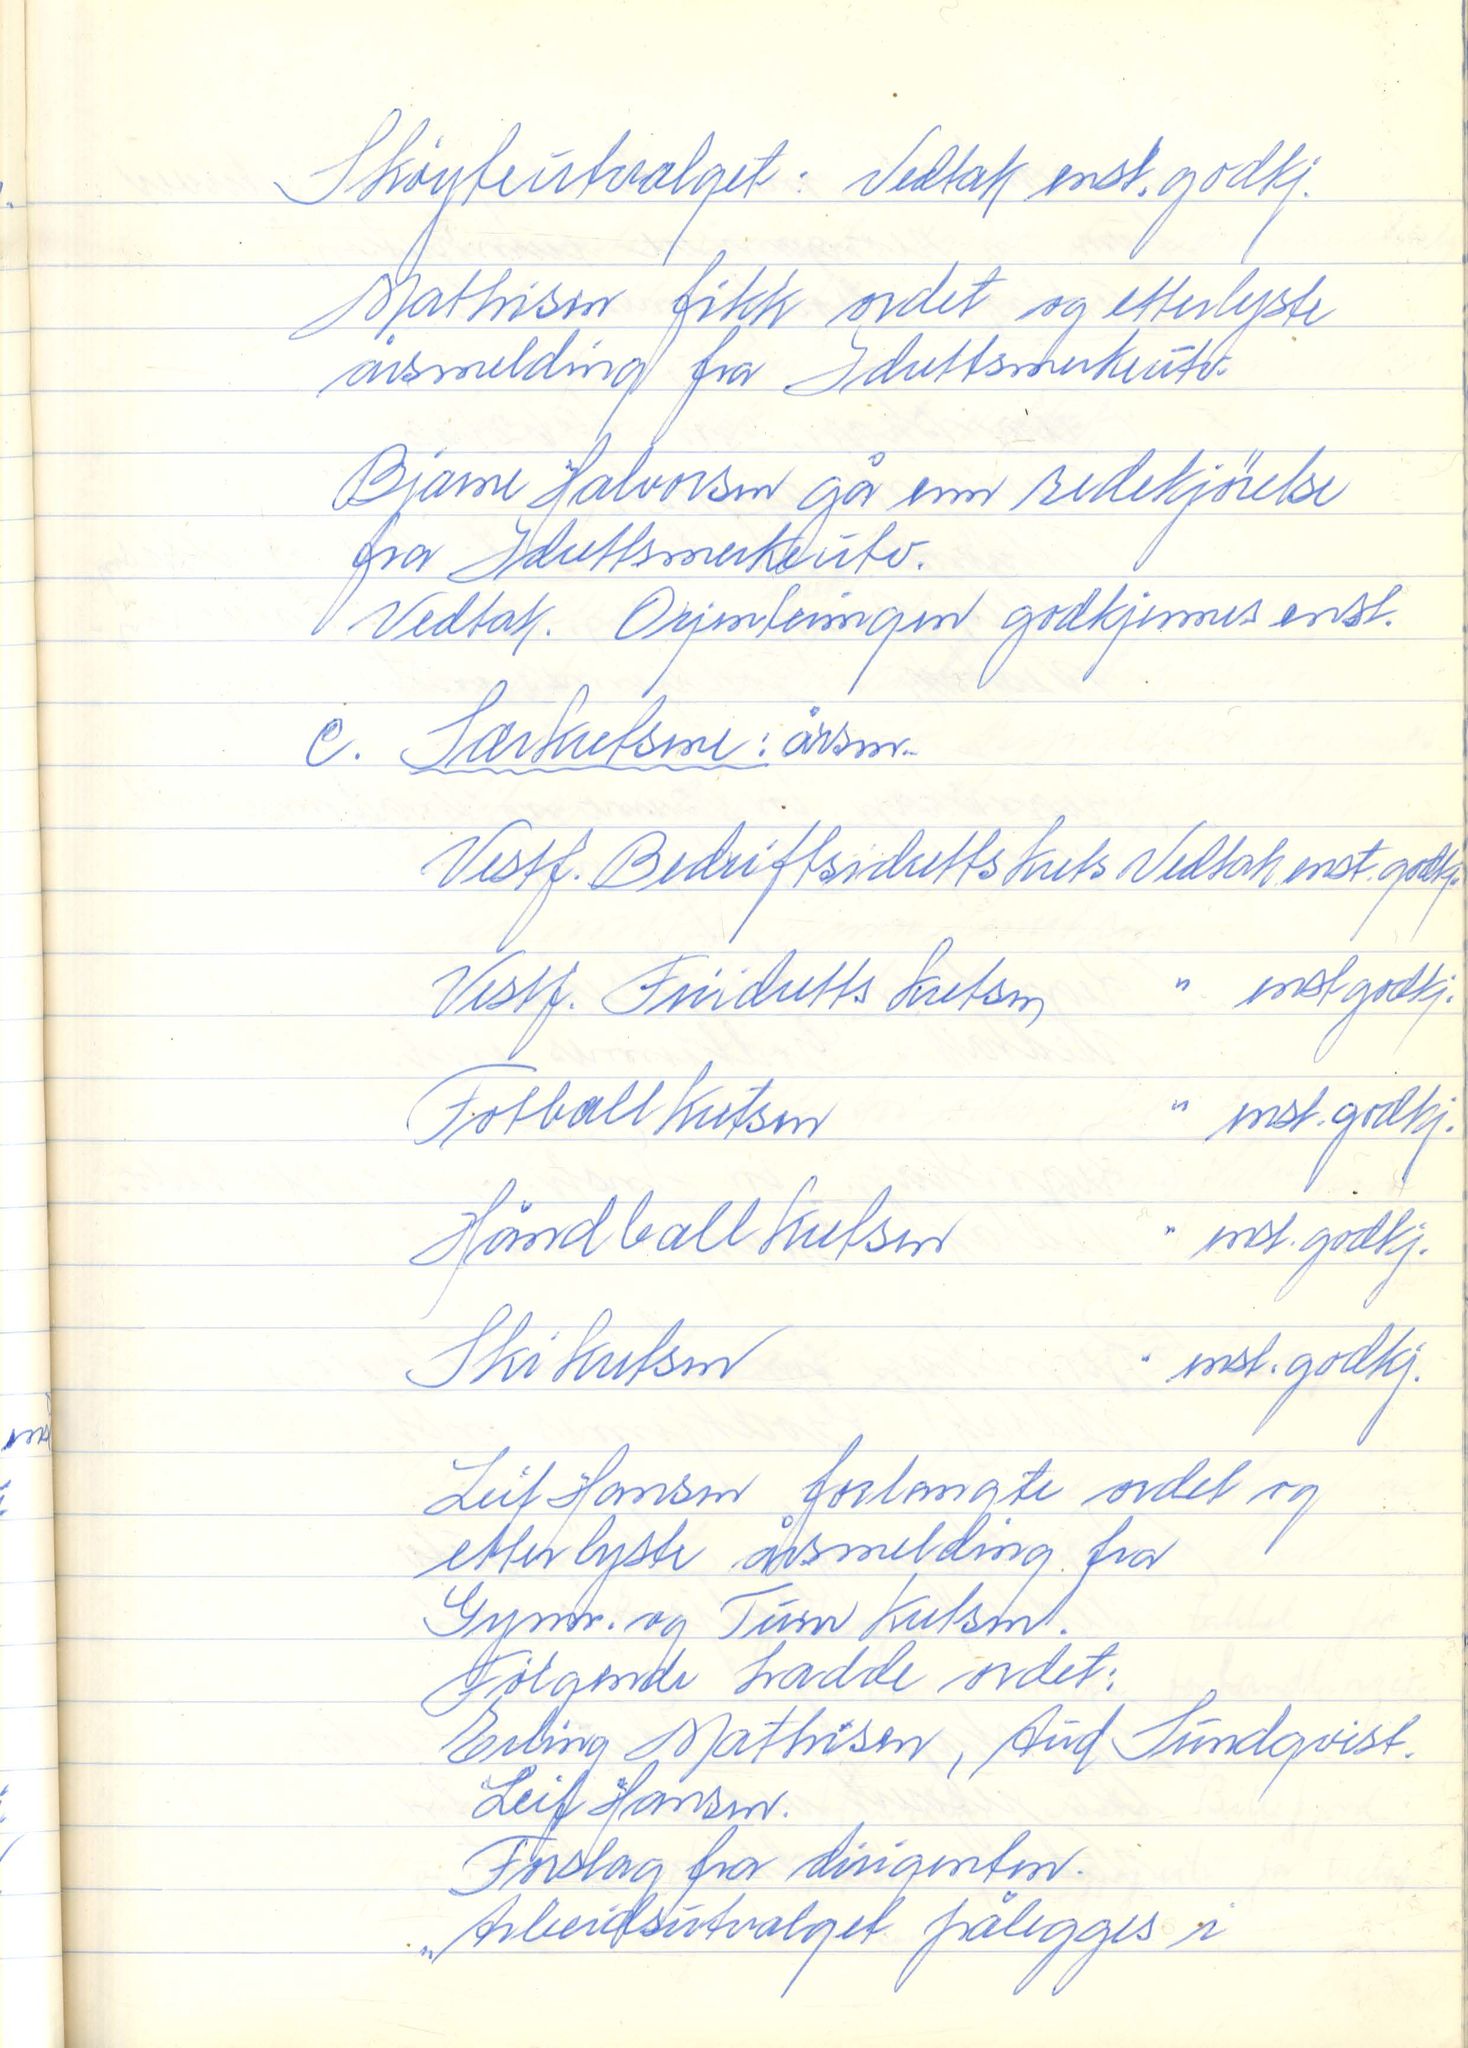 Skøyteutvalget: Vedtak enst. godkj.
Mathisen fikk ordet og etterlyste
årsmelding fra Idrettsmerkeutv.
Bjarne Halvorsen gå enn redekjørelse
fra Idrettsmerkeutv.
Vedtak. Orjenteringen godkjennes enst.
c. Særkretsene: årsm.
Vestf. Bedriftsidrettskrets Vedtak enst. godkj.
Vestf. Friidrettskretsen " enst godkj.
Fotballkretsen " enst. godkj.
Håndballkretsen " enst. godkj.
Skikretsen " enst. godkj.
Leif Hansen forlangte ordet og
etterlyste årsmelding fra
Gymn. og Turnkretsen.
Følgende hadde ordet:
Erling Mathisen, Aud Sundqvist.
Leif Hansen.
Forslag fra dirigenten.
"Arbeidsutvalget pålegges i